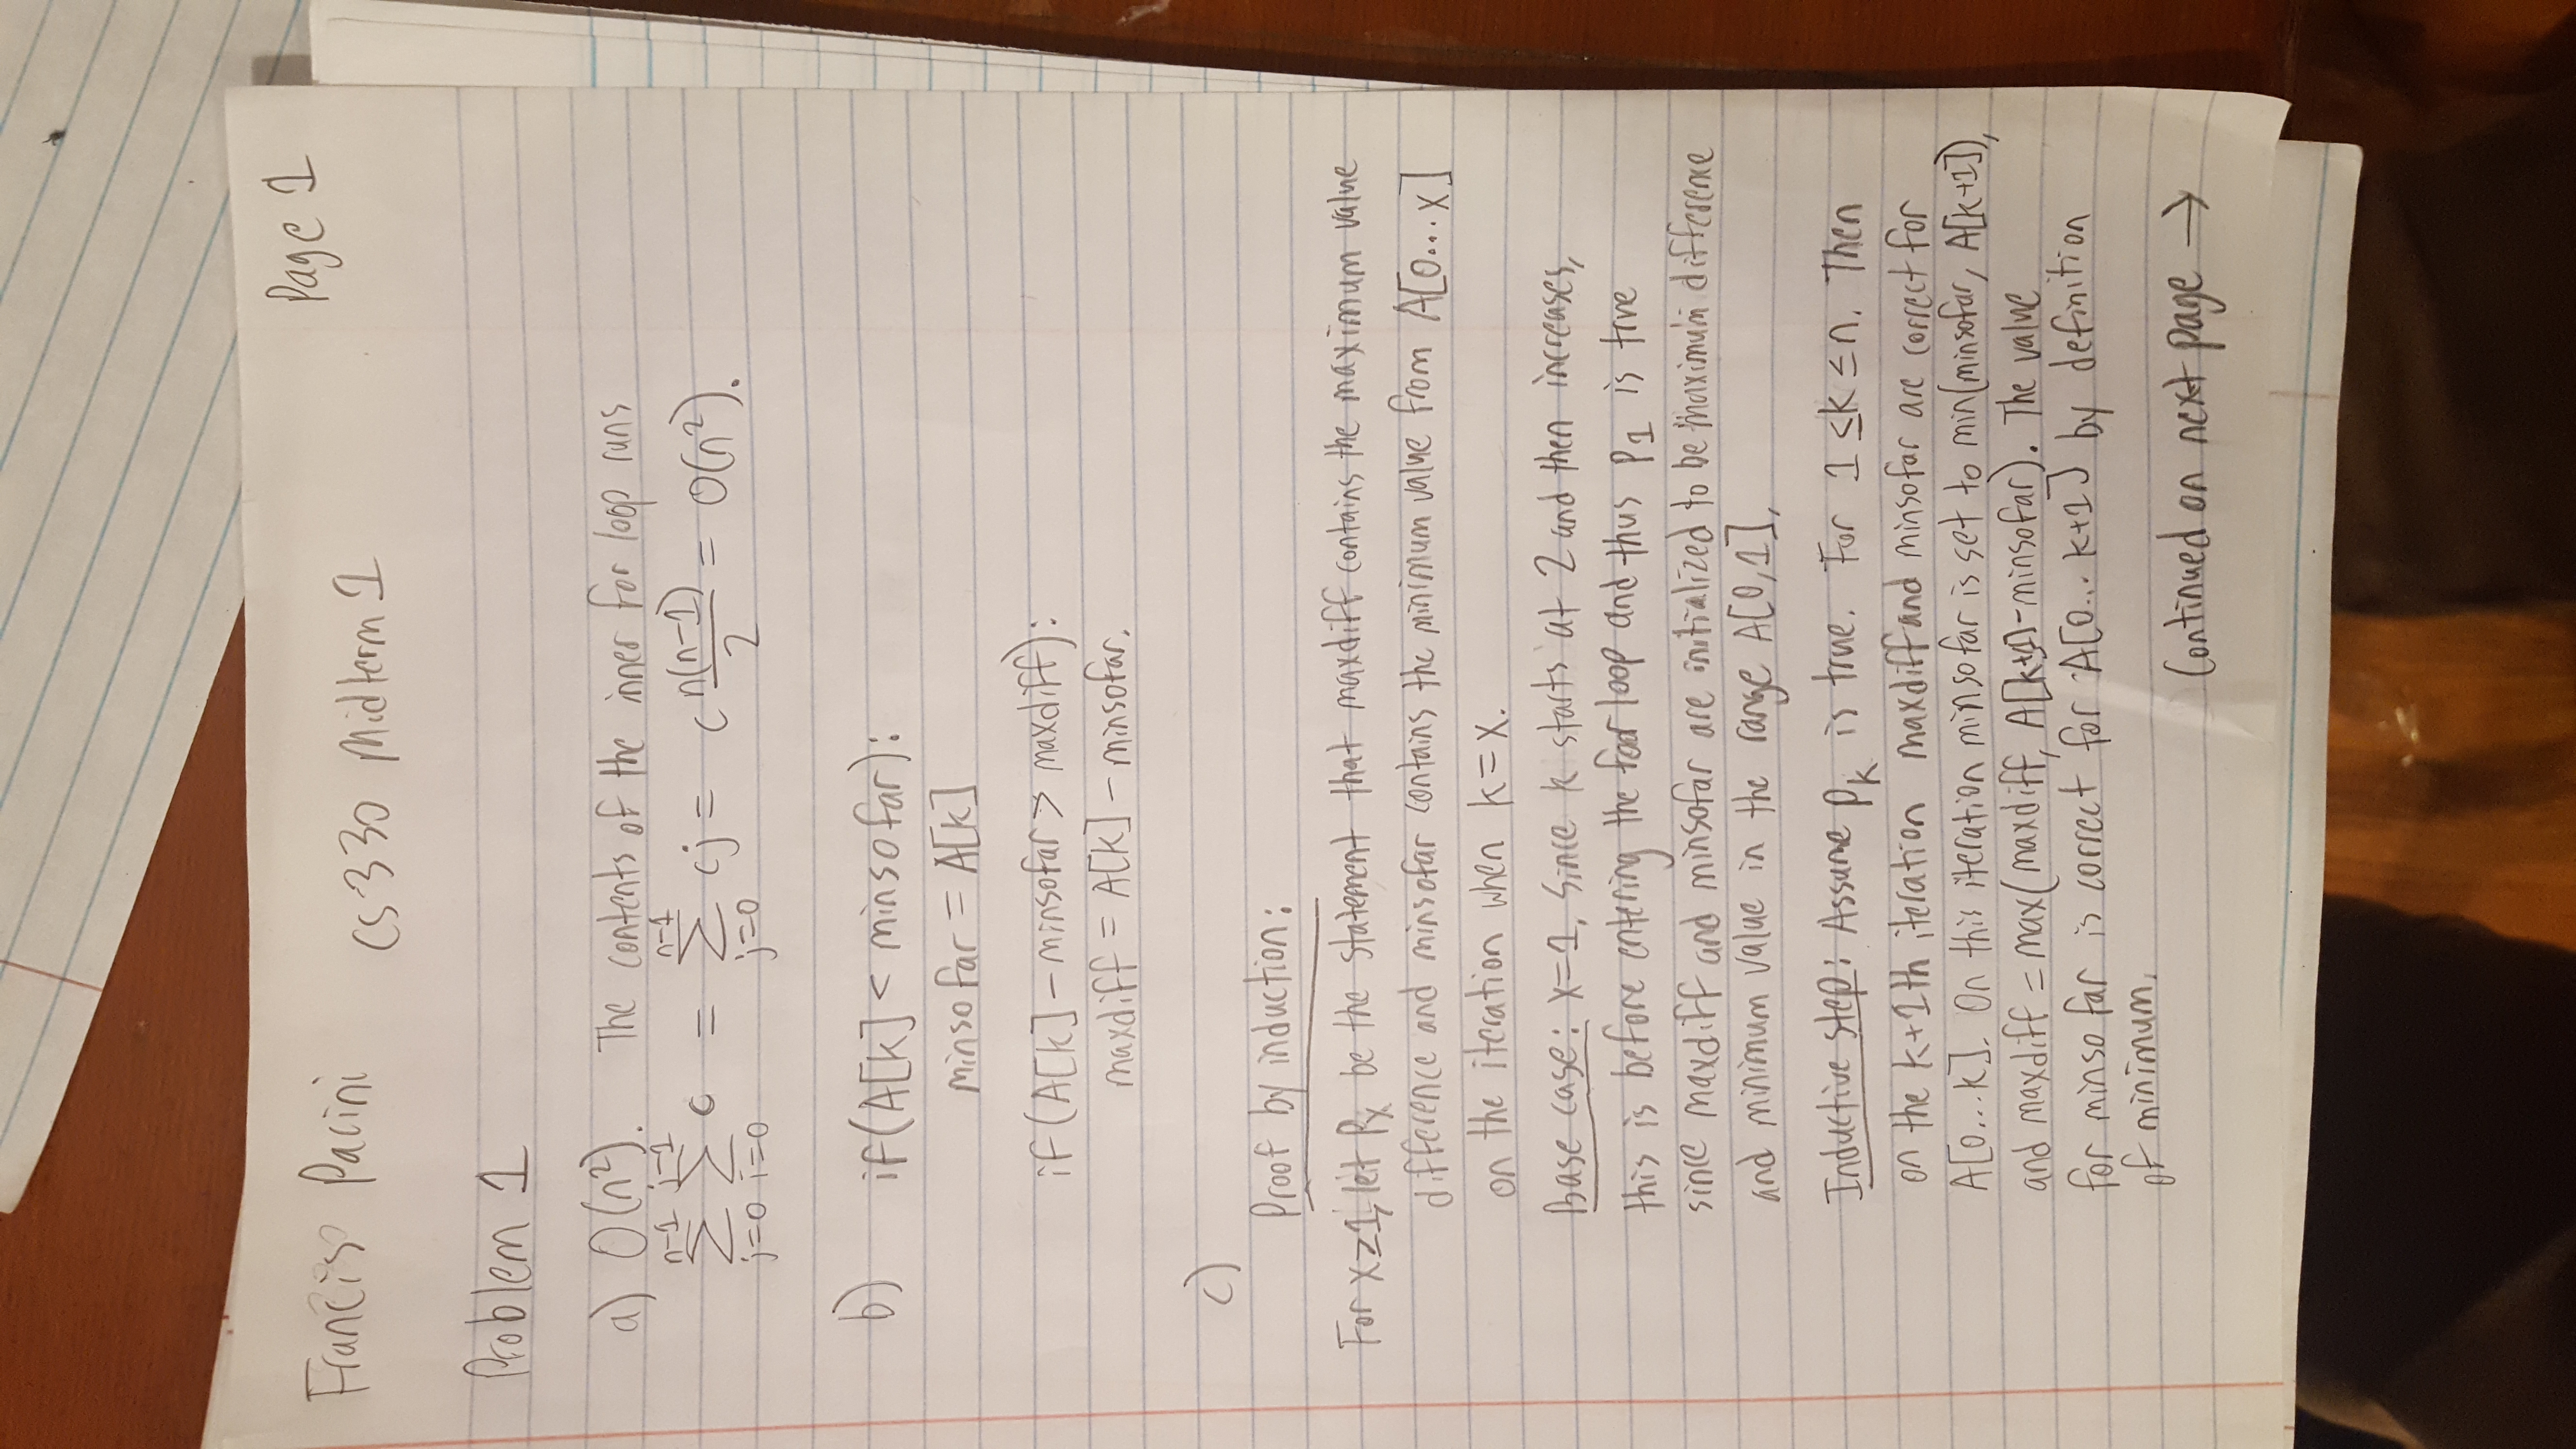 Page 1
Francis Pacini
CS 330 Midterm 1
Problem 1
a) O(n²). The contents of the inner for loop runs
∑_{j=0}^{n-1} ∑_{i=0}^{j-1} c = ∑_{j=0}^{n-1} cj = c n(n-1)/2 = O(n²).
b) if(A[k] < minsofar):
minsofar = A[k]
if(A[k] - minsofar > maxdiff):
maxdiff = A[k] - minsofar.
c)
Proof by induction:
For x≥1, let Px be the statement that maxdiff contains the maximum value
difference and minsofar contains the minimum value from A[0...x]
on the iteration when k=x.
Base case: x=1. Since k starts at 2 and then increases,
this is before entering the for loop and thus P1 is true
since maxdiff and minsofar are initialized to be maximum difference
and minimum value in the range A[0,1].
Inductive step: Assume Pk is true. For 1≤k≤n. Then
on the k+1th iteration maxdiff and minsofar are correct for
A[0...k]. On this iteration minsofar is set to min(minsofar, A[k+1]),
and maxdiff = max(maxdiff, A[k+1]-minsofar). The value
for minsofar is correct for A[0...k+1] by definition
of minimum.
Continued on next page →